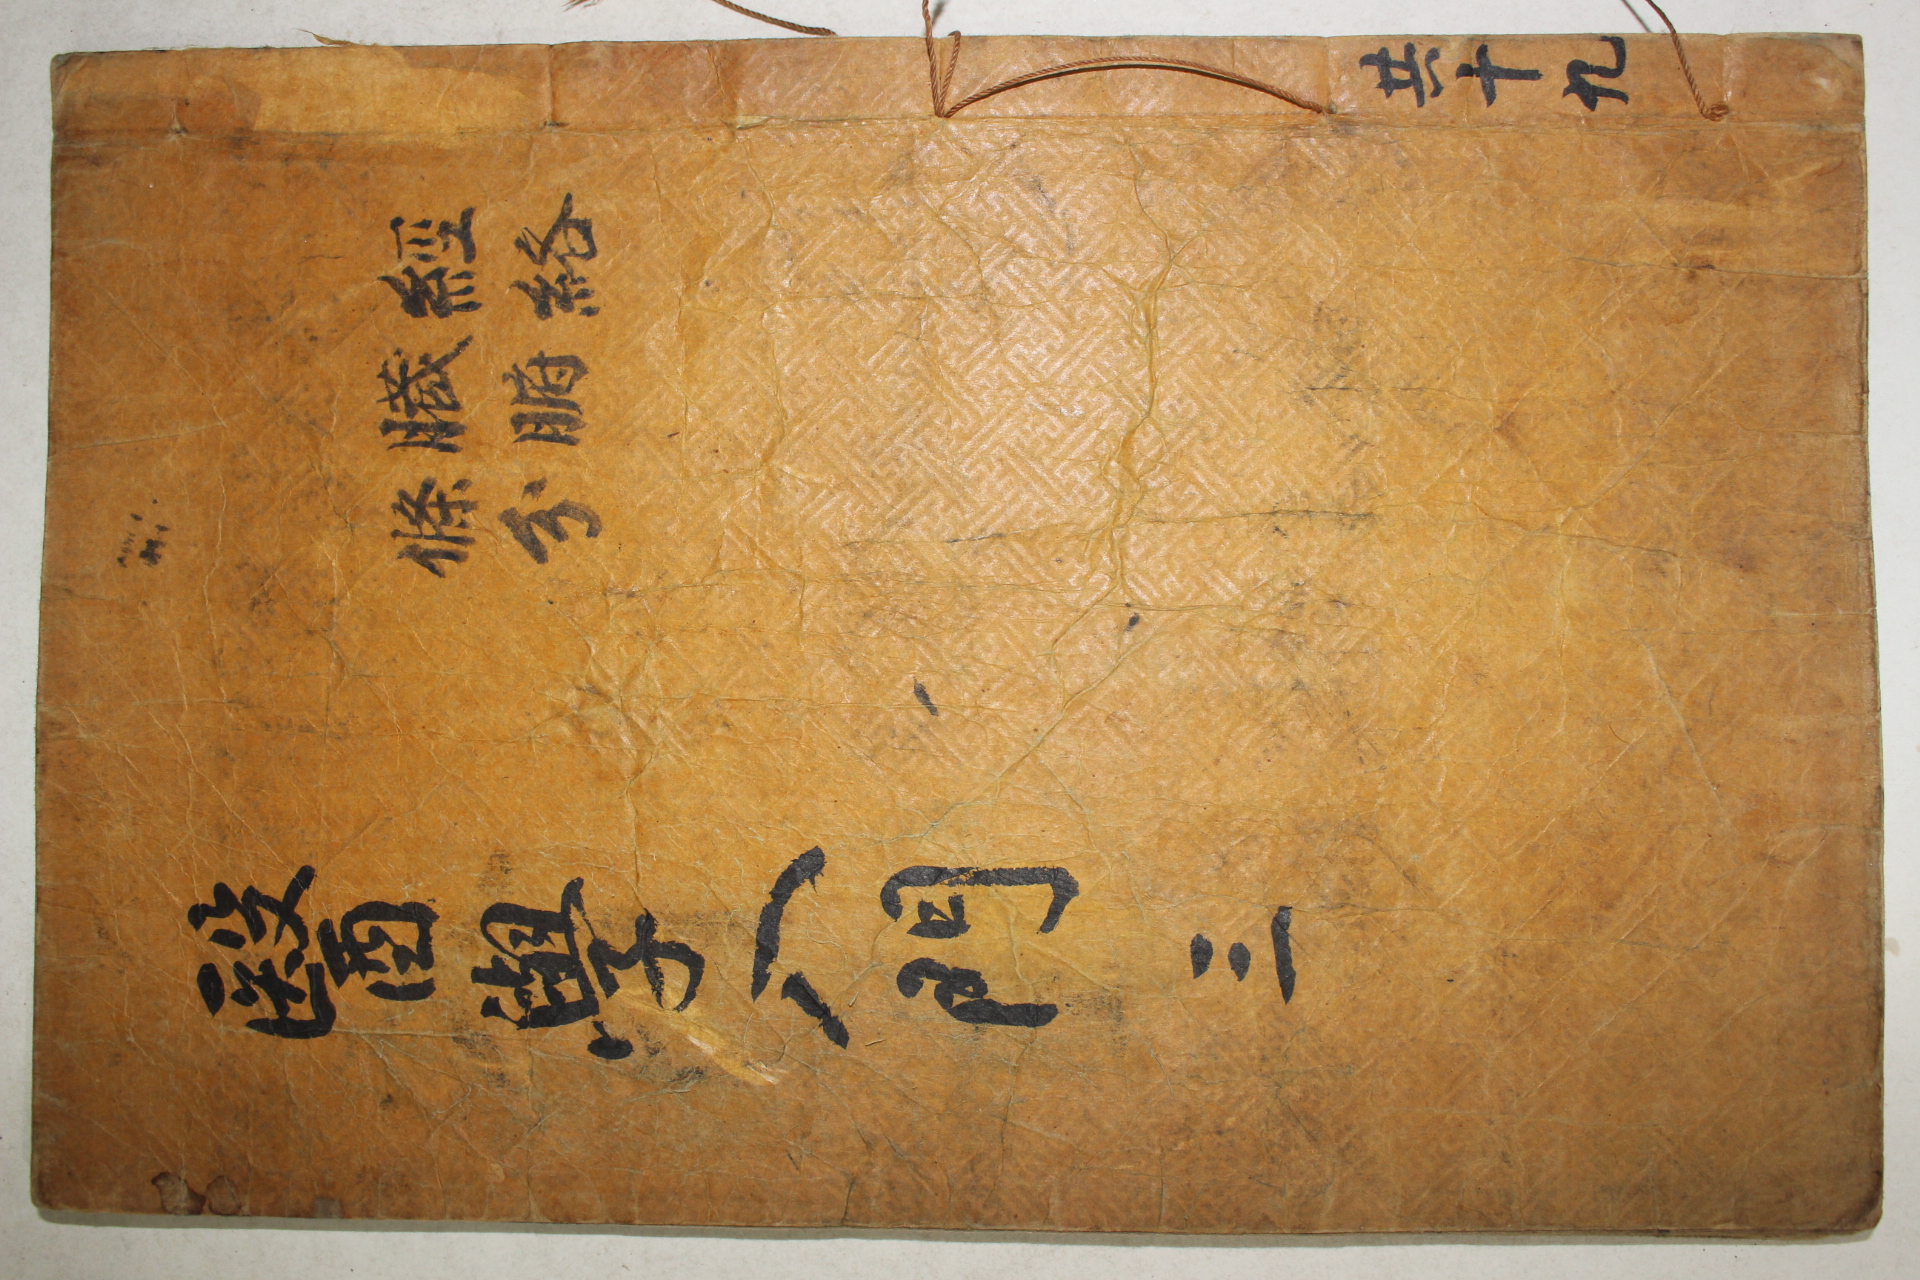 經絡
臟腑
條分
醫學入門 三
共十九